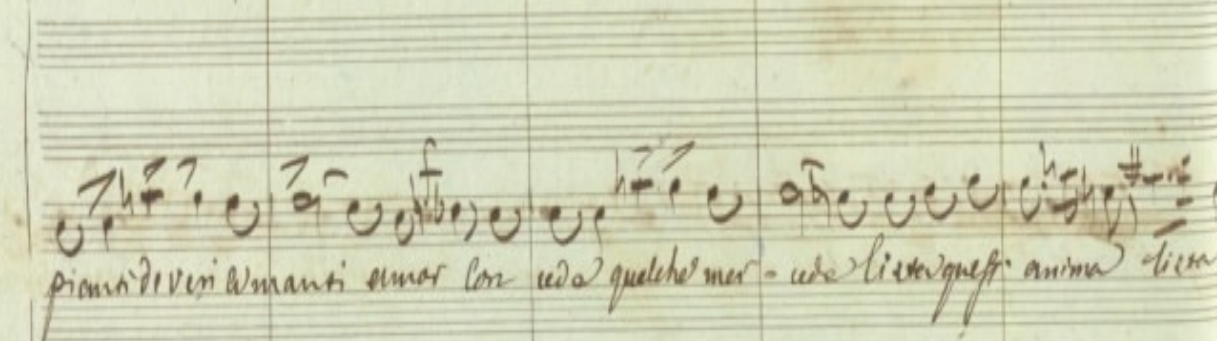 pianti di veri amanti amor con ceda qualche mer - cede lieta quest' anima lieta